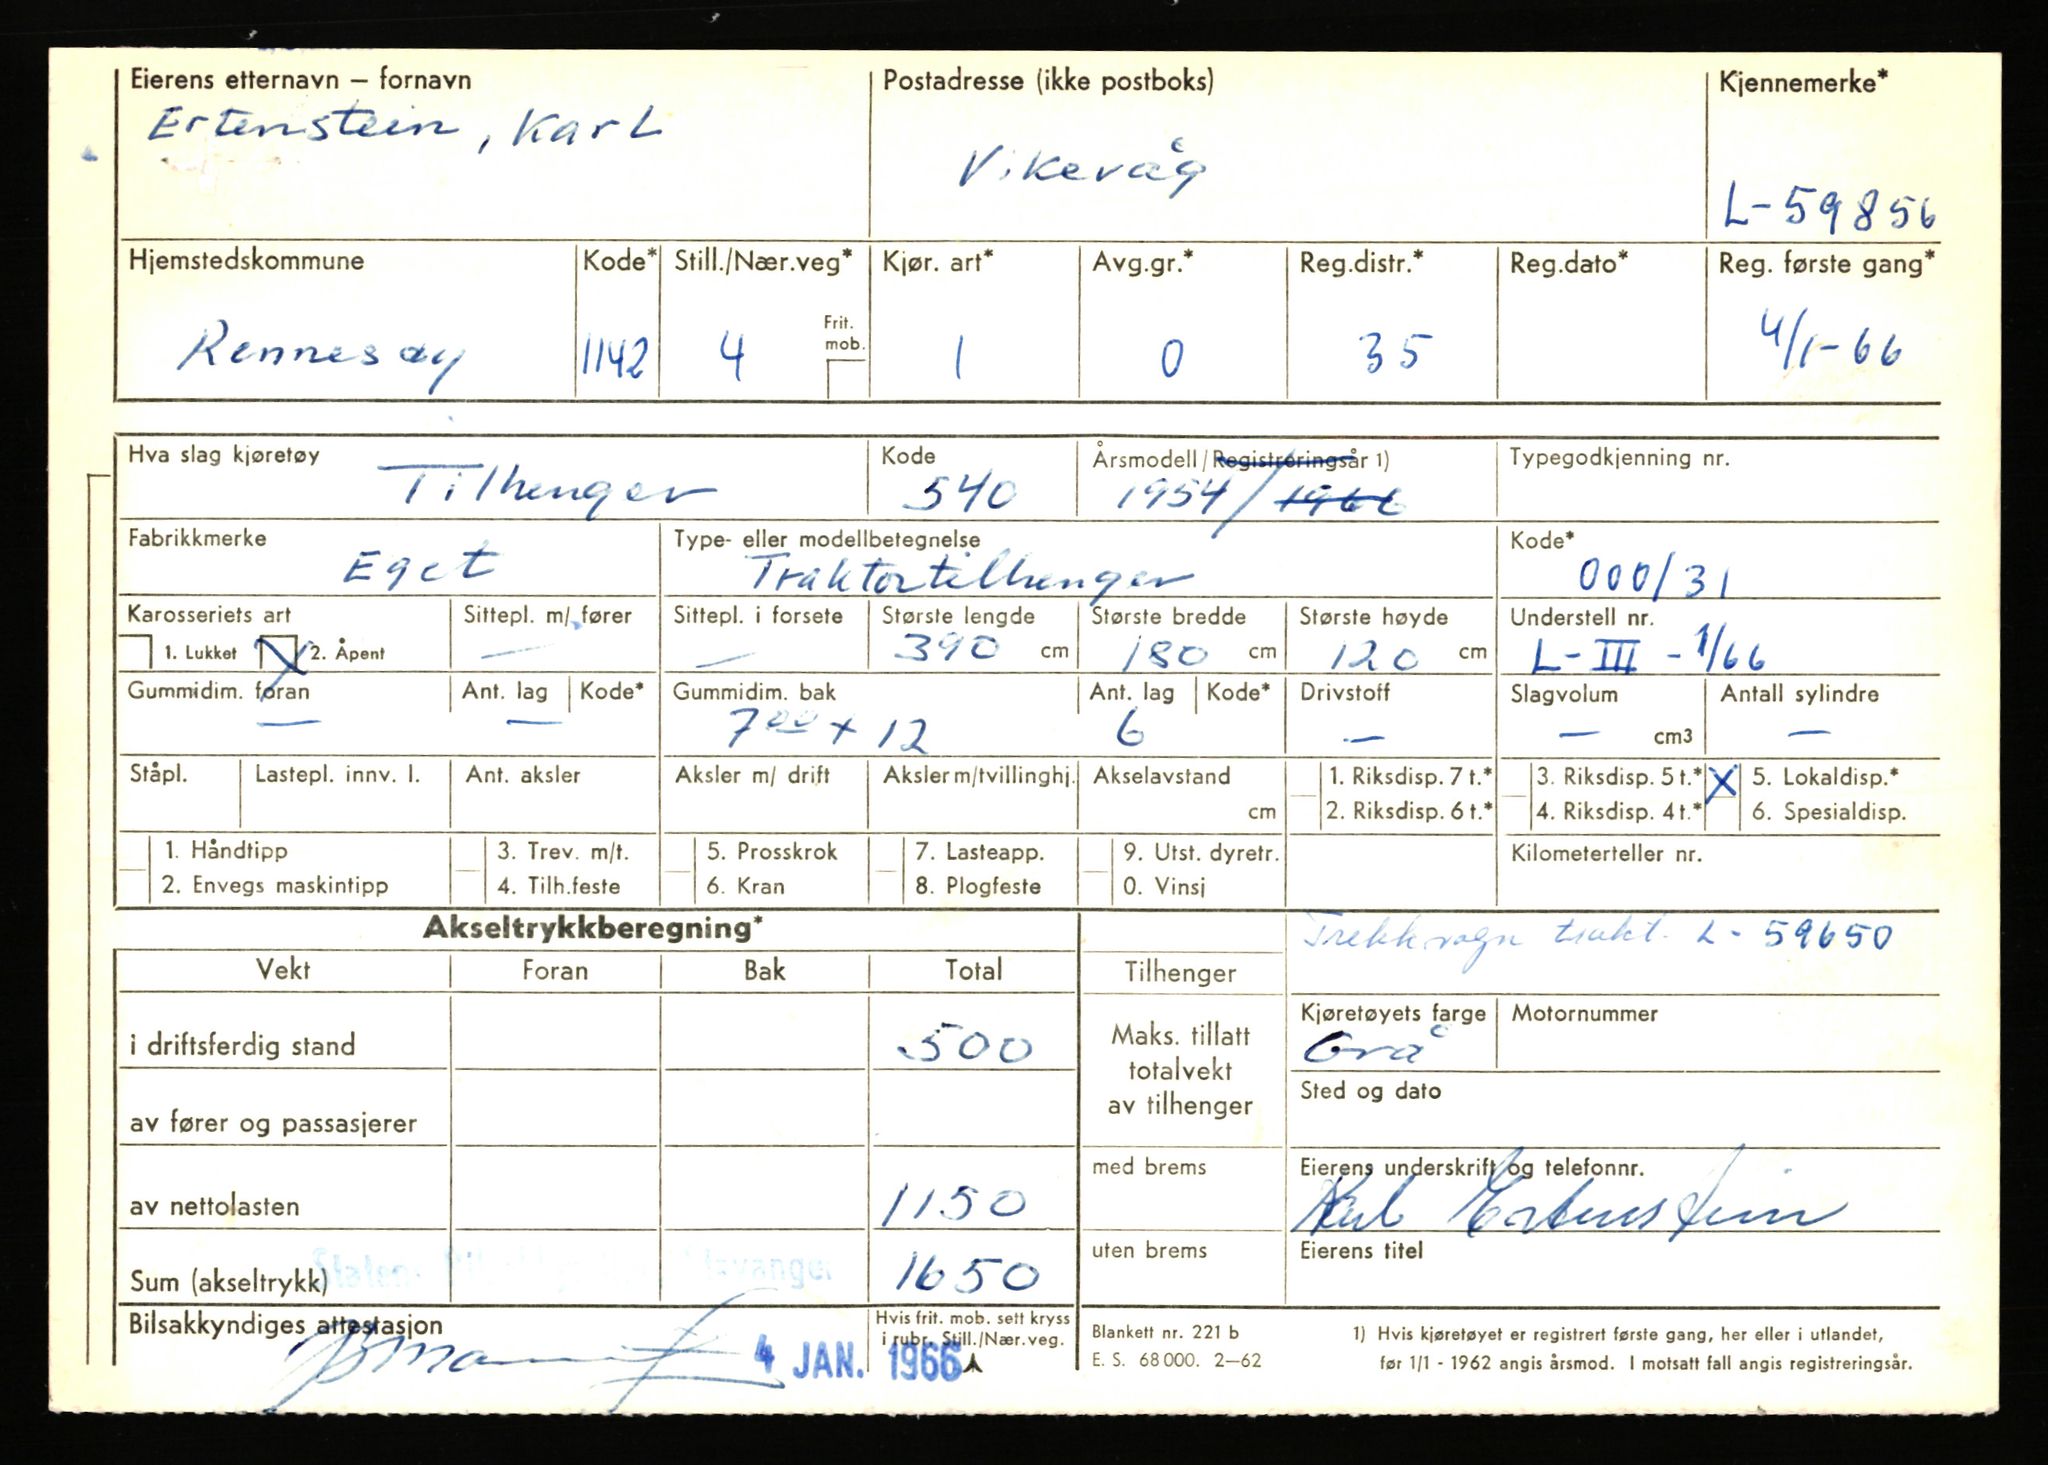 Eierens etternavn – fornavn
Ertenstein, Karl
Postadresse (ikke postboks)
Vikevåg
Kjennemerke*
L-59856
Hjemstedskommune
Rennesøy
Kode*
1142
Still./Nær.veg*
4
Frit.
mob.
Kjør. art*
1
Avg.gr.*
0
Reg.distr.*
35
Reg.dato*
Reg. første gang*
4/1-66
Hva slag kjøretøy
Tilhenger
Kode
540
Årsmodell/Registreringsår 1)
1954/1966
Typegodkjenning nr.
Fabrikkmerke
Eget
Type- eller modellbetegnelse
Traktortilhenger
Kode*
000/31
Karosseriets art
1. Lukket X 2. Åpent
Sittepl. m/ fører
—
Sittepl. i forsete
—
Største lengde
390 cm
Største bredde
180 cm
Største høyde
120 cm
Understell nr.
L-III-1/66
Gummidim. foran
—
Ant. lag
—
Kode*
Gummidim. bak
7 00 + 12
Ant. lag
6
Kode*
Drivstoff
—
Slagvolum
— cm3
Antall sylindre
—
Ståpl.
Lastepl. innv. l.
Ant. aksler
Aksler m/ drift
Aksler m/tvillinghj.
Akselavstand
cm
1. Riksdisp. 7 t.*
2. Riksdisp. 6 t.*
3. Riksdisp. 5 t.*
4. Riksdisp. 4 t.*
X 5. Lokaldisp.*
6. Spesialdisp.
1. Håndtipp
2. Envegs maskintipp
3. Trev. m/t.
4. Tilh.feste
5. Prosskrok
6. Kran
7. Lasteapp.
8. Plogfeste
9. Utst. dyretr.
0. Vinsj
Kilometerteller nr.
Akseltrykkberegning*
Trekkvogn trakt. L-59650
Vekt Foran Bak Total
Tilhenger
i driftsferdig stand 500
av fører og passasjerer
av nettolasten 1150
Sum (akseltrykk) 1650
Maks. tillatt
totalvekt
av tilhenger
med brems
uten brems
Kjøretøyets farge
Grå
Motornummer
Sted og dato
Eierens underskrift og telefonnr.
Karl Ertenstein
Eierens titel
Bilsakkyndiges attestasjon
4 JAN. 1966
Hvis frit. mob. sett kryss
i rubr. Still./Nær.veg.
Blankett nr. 221 b
E. S. 68 000. 2–62
1) Hvis kjøretøyet er registrert første gang, her eller i utlandet,
før 1/1 - 1962 angis årsmod. I motsatt fall angis registreringsår.